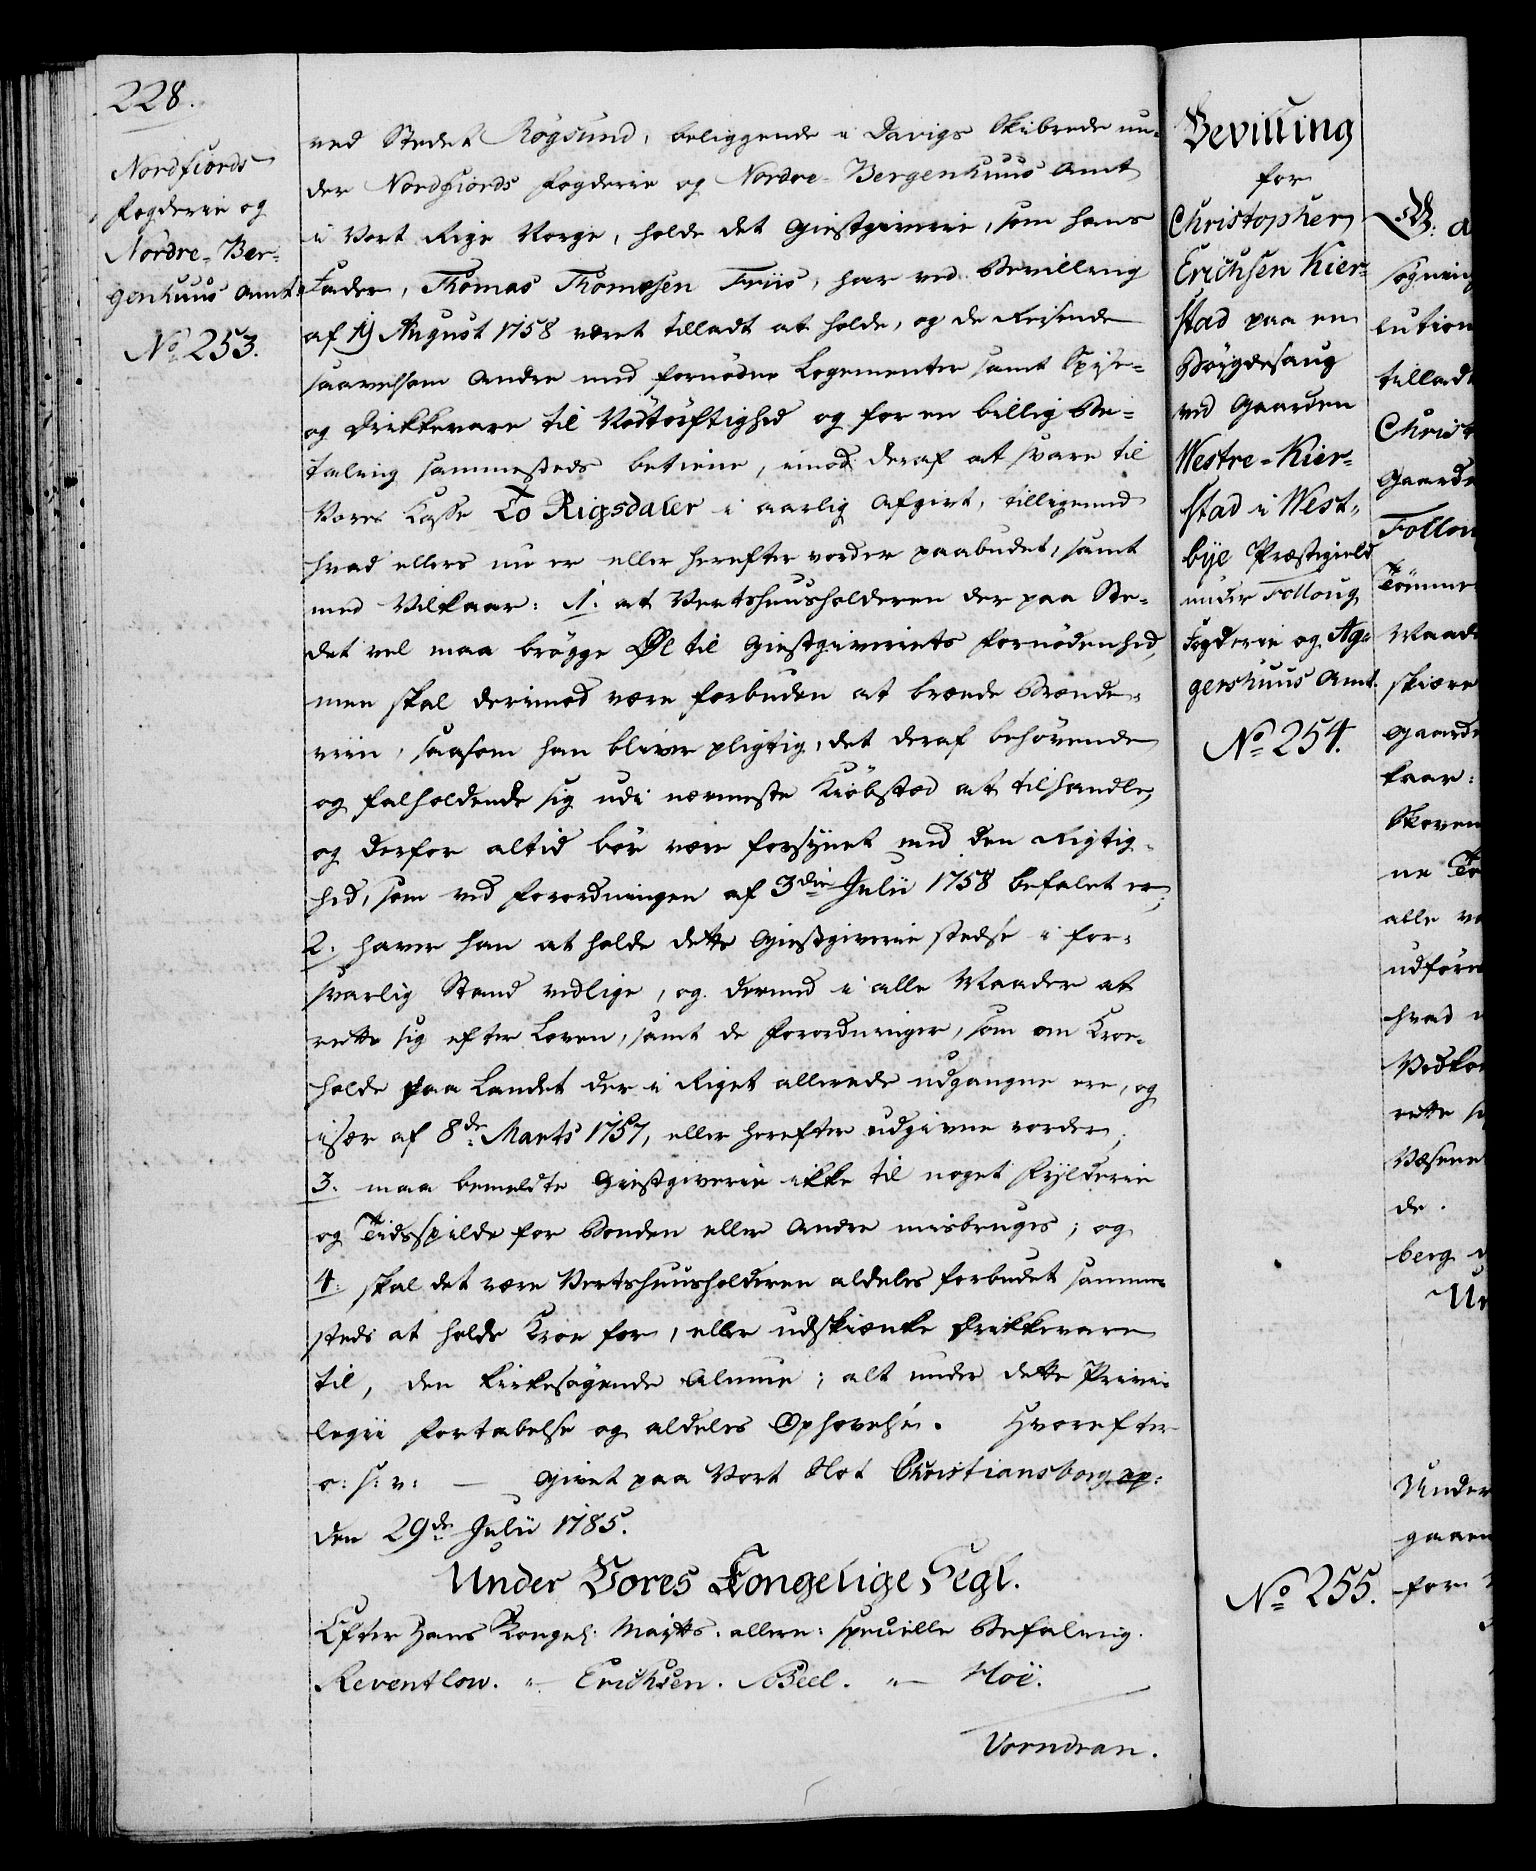 228.
Nordfiords
Fogderie og
Nordre-Ber-
genhuus Amt.
No 253.
ved Stedet Rögsund, beliggende i Davigs Skibrede un-
der Nordfiords Fogderie og Nordre-Bergenhuus Amt
i Vort Rige Norge, holde det Giestgiverie, som hans
Fader, Thomas Thomesen Friis, har ved Bevilling
af 19 August 1758 været tilladt at holde, og de Reisende
saavelsom Andre med fornødne Logementer samt Spise-
og Drikkevare til Nødtørftighed og for en billig Be-
taling sammesteds betiene, imod deraf at svare til
Vores Casse To Rigsdaler i aarlig Afgivt, tilligemed
hvad ellers nu er eller herefter vorder paabudet, samt
med Vilkaar: 1. at Vertshuusholderen der paa Ste-
det vel maa brögge Øl til Giestgiveriets Fornödenhed,
men skal derimod være forbuden at brænde Brænde-
viin, saasom han bliver pligtig, det deraf behövende
og falholdende sig udi nærmeste Kiöbstæd at tilhandle,
og derfor altid bör være forsÿnet med den Rigtig-
hed, som ved Forordningen af 3die Julii 1758 befalet er;
2. haver han at holde dette Giestgiverie stedse i for-
svarlig Stand vedlige, og dermed i alle Maader at
rette sig efter Loven, samt de Forordninger, som om Kroe-
holde paa Landet der i Riget allerede udgangne ere, og
især af 8de Marts 1757, eller herefter udgivne vorder;
3. maa bemeldte Giestgiverie ikke til noget Fÿlderie
og Tidsspilde for Bonden eller Andre misbruges; og
4. skal det være Vertshuusholderen aldeles forbudet samme-
steds at holde Kroe for, eller udskiænke Drikkevare
til, den kirkesøgende Almue; alt under dette Privi-
legii Fortabelse og aldeles Ophævelse. Hvorefter
o: s: v: — Givet paa Vort Slot Christiansborg
den 29de Julii 1785.
Under Vores Kongelige Segl.
Efter Hans Kongel: Maÿtts. allern: specielle Befaling.
Reventlow. Erichsen. Beel. Hoë.
Vorndran.
Bevilling
for
Christopher
Erichsen Kier-
stad paa en
Böygdesaug
ved Gaarden
Westre-Kier-
stad i West-
bÿe Præstegield
under Folloug
Fogderie og Ag-
gershuus Amt.
No 254.
No 255.
sögning
lution
tilladt
Christ
Gaarde
Follou
Tömmer
Maade
skiære
Gaarde
kaar:
Skoven
ne Tö
alle v
udföre
hvad
Vedkom
rette s
Væsene
de.
berg
Un
Under
gaaen
for